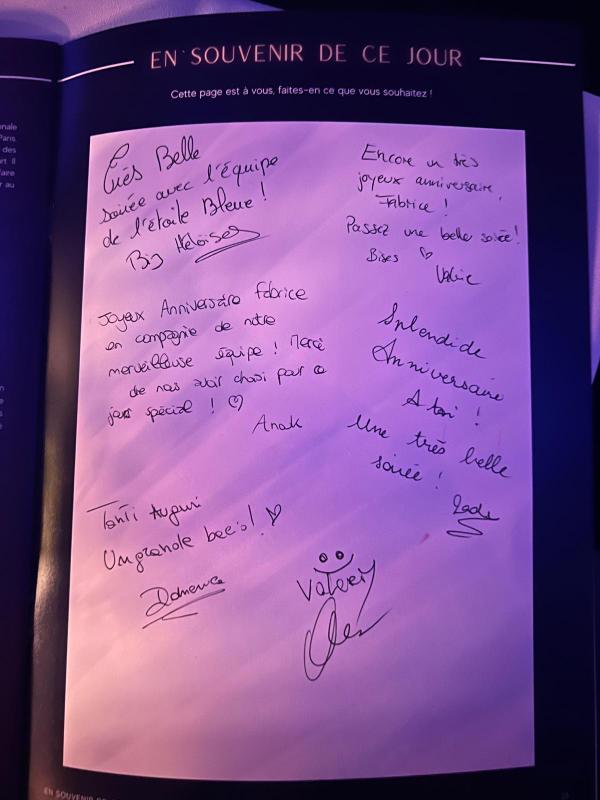 EN SOUVENIR DE CE JOUR
Cette page est à vous, faites-en ce que vous souhaitez !
Très Belle
soirée avec l'équipe
de l'étoile Bleue !
Big Héloïse
Encore un très
joyeux anniversaire,
Fabrice !
Passez une belle soirée !
Bises ♡
Valérie
Joyeux Anniversaire Fabrice
en compagnie de notre
merveilleuse équipe ! Merci
de nous avoir choisi pour ce
jour spécial ! ♡
Anak
Splendide
Anniversaire
A toi !
Une très belle
soirée !
Tanti Auguri
Un grande bacio! ♡
Valeriy
EN SOUVENIR DE
nale
Paris.
des
rt il
faire
r au